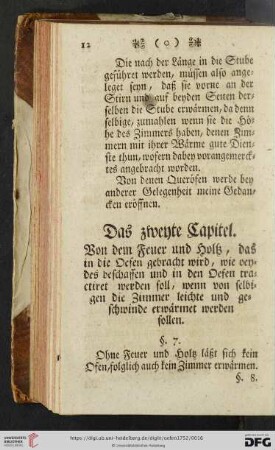 12 ( o )
Die nach der Länge in die Stube
geführet werden, müssen also ange-
leget seyn, daß sie vorne an der
Stirn und auf beyden Seiten der-
selben die Stube erwärmen, da denn
selbige, zumahlen wenn sie die Hö-
he des Zimmers haben, denen Zim-
mern mit ihrer Wärme gute Dien-
ste thun, wofern dabey vorangemerck-
tes angebracht worden.
Von denen Queröfen werde bey
anderer Gelegenheit meine Gedan-
cken eröffnen.
Das zweyte Capitel.
Von dem Feuer und Holtz, das
in die Oefen gebracht wird, wie bey-
des beschaffen und in den Oefen tra-
ctiret werden soll, wenn von selbi-
gen die Zimmer leichte und ge-
schwinde erwärmet werden
sollen.
§. 7.
Ohne Feuer und Holtz läßt sich kein
Ofen, folglich auch kein Zimmer erwärmen.
§. 8.
https://digi.ub.uni-heidelberg.de/diglit/oefen1752/0016
© Universitätsbibliothek Heidelberg